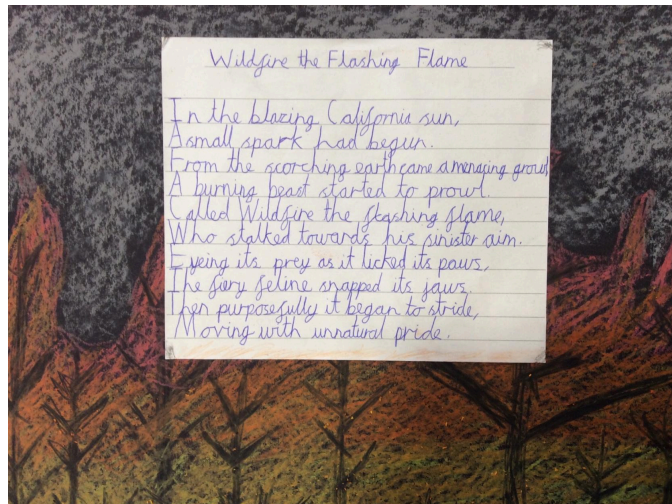 Wildfire the Flashing Flame
In the blazing California sun,
A small spark had begun.
From the scorching earth came a menacing growl
A burning beast started to prowl.
Called Wildfire the flashing flame,
Who stalked towards his sinister aim.
Eyeing its prey as it licked its paws,
The fiery feline snapped its jaws.
Then purposefully it began to stride,
Moving with unnatural pride.